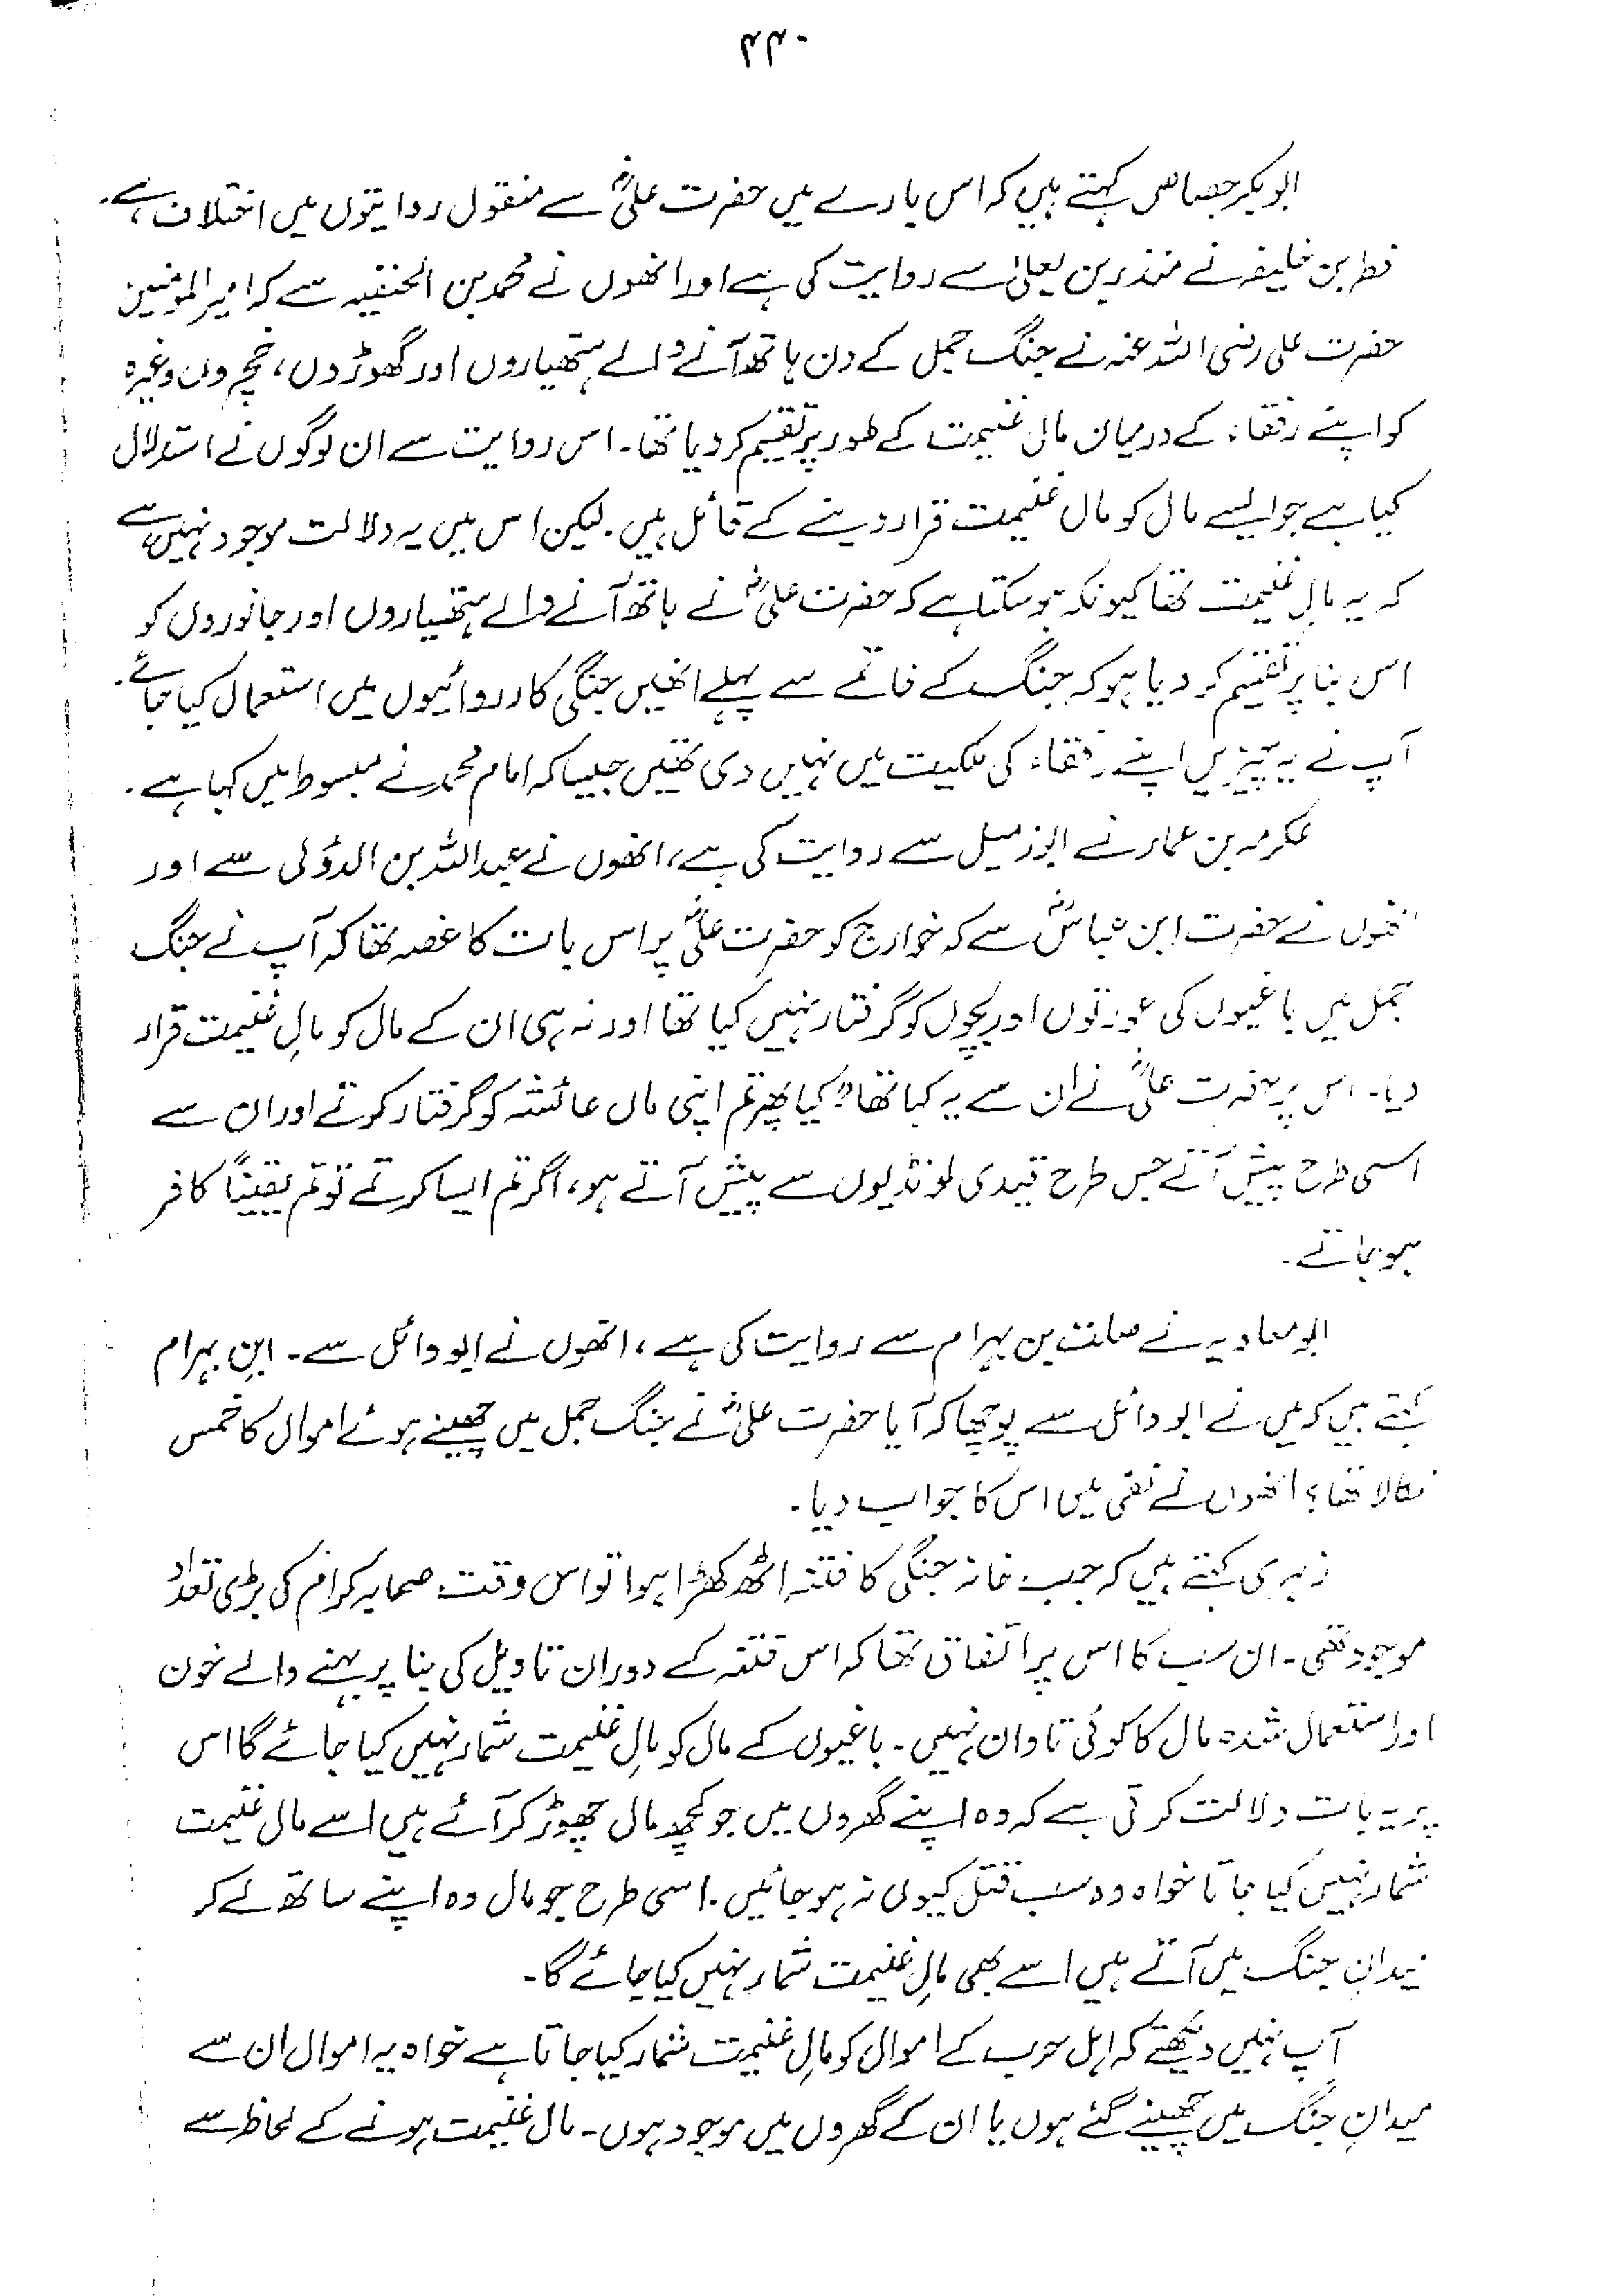 ۴۴۰
ابوبکر جصاص کہتے ہیں کہ اس بارے میں حضرت علیؓ سے منقول روایتوں میں اختلاف ہے۔
فطر بن خلیفہ نے منذر بن یعلیٰ سے روایت کی ہے اور انھوں نے محمد بن الحنفیہ سے کہ امیر المومنین
حضرت علی رضی اللہ عنہ نے جنگ جمل کے دن ہاتھ آنے والے ہتھیاروں اور گھوڑوں، خچروں وغیرہ
کو اپنے رفقاء کے درمیان مال غنیمت کے طور پر تقسیم کر دیا تھا۔ اس روایت سے ان لوگوں نے استدلال
کیا ہے جو ایسے مال کو مال غنیمت قرار دینے کے قائل ہیں۔ لیکن اس میں یہ دلالت موجود نہیں ہے
کہ یہ مالِ غنیمت تھا کیونکہ ہو سکتا ہے کہ حضرت علیؓ نے ہاتھ آنے والے ہتھیاروں اور جانوروں کو
اس بنا پر تقسیم کر دیا ہو کہ جنگ کے خاتمے سے پہلے انھیں جنگی کارروائیوں میں استعمال کیا جائے۔
آپ نے یہ چیزیں اپنے رفقاء کی ملکیت میں نہیں دی تھیں جیسا کہ امام محمد نے مبسوط میں کہا ہے۔
عکرمہ بن عمار نے ابوزمیل سے روایت کی ہے، انھوں نے عبداللہ بن الدؤلی سے اور
انھوں نے حضرت ابن عباسؓ سے کہ خوارج کو حضرت علیؓ پر اس بات کا غصہ تھا کہ آپ نے جنگ
جمل میں باغیوں کی عورتوں اور بچوں کو گرفتار نہیں کیا تھا اور نہ ہی ان کے مال کو مالِ غنیمت قرار
دیا۔ اس پر حضرت علیؓ نے ان سے یہ کہا تھا "کیا پھر تم اپنی ماں عائشہ کو گرفتار کرتے اور ان سے
اسی طرح پیش آتے جس طرح قیدی لونڈیوں سے پیش آتے ہو، اگر تم ایسا کرتے تو تم یقیناً کافر
ہو جاتے۔
ابو معاویہ نے صلت بن بہرام سے روایت کی ہے، انھوں نے ابو وائل سے۔ ابنِ بہرام
کہتے ہیں کہ میں نے ابو وائل سے پوچھا کہ آیا حضرت علیؓ نے جنگ جمل میں چھینے ہوئے اموال کا خمس
نکالا تھا؟ انھوں نے نفی میں اس کا جواب دیا۔
زہری کہتے ہیں کہ جب خانہ جنگی کا فتنہ اٹھ کھڑا ہوا تو اس وقت صحابہ کرام کی بڑی تعداد
موجود تھی۔ ان سب کا اس پر اتفاق تھا کہ اس فتنہ کے دوران تاویل کی بنا پر بہنے والے خون
اور استعمال شدہ مال کا کوئی تاوان نہیں۔ باغیوں کے مال کو مالِ غنیمت شمار نہیں کیا جائے گا اس
پر یہ بات دلالت کرتی ہے کہ وہ اپنے گھروں میں جو کچھ مال چھوڑ کر آئے ہیں اسے مال غنیمت
شمار نہیں کیا جاتا خواہ وہ سب قتل کیوں نہ ہو جائیں۔ اسی طرح جو مال وہ اپنے ساتھ لے کر
میدانِ جنگ میں آتے ہیں اسے بھی مالِ غنیمت شمار نہیں کیا جائے گا۔
آپ نہیں دیکھتے کہ اہل حرب کے اموال کو مالِ غنیمت شمار کیا جاتا ہے خواہ یہ اموال ان سے
میدانِ جنگ میں چھینے گئے ہوں یا ان کے گھروں میں موجود ہوں۔ مال غنیمت ہونے کے لحاظ سے